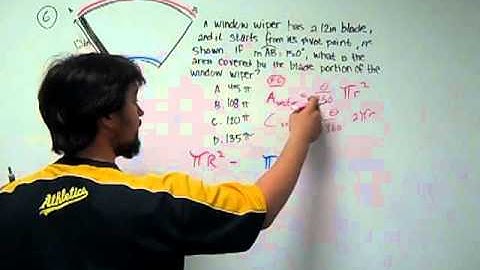 C
A window wiper has a 12in blade,
and it starts from its pivot point, as
shown. If m AB is 110°, what is the
area covered by the blade portion of the
window wiper?
A. 45π
B. 108π
A sector = θ/360 πr²
C. 120π
C θ/360 2πr
D. 135π
πR² - π
Athletics